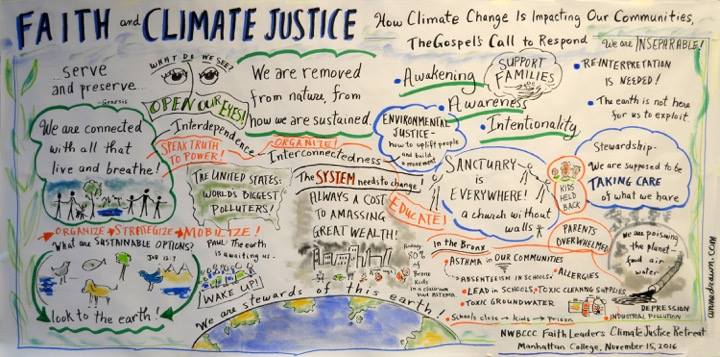 FAITH and CLIMATE JUSTICE
How Climate Change Is Impacting Our Communities,
The Gospel's Call to Respond
...serve
and preserve...
-Genesis
WHAT DO WE SEE?
OPEN OUR EYES!
We are removed
from nature, from
how we are sustained.
• Awakening
• Awareness
• Intentionality
SUPPORT
FAMILIES
We are INSEPARABLE!
• RE-INTERPRETATION
IS NEEDED!
• The earth is not here
for us to exploit.
We are connected
with all that
live and breathe!
Interdependence
SPEAK TRUTH
TO POWER!
ORGANIZE!
Interconnectedness
ENVIRONMENTAL
JUSTICE-
how to uplift people
and build
a movement
THE UNITED STATES:
WORLD'S BIGGEST
POLLUTERS!
The SYSTEM needs to change!
ALWAYS A COST
TO AMASSING
GREAT WEALTH!
EDUCATE!
SANCTUARY
is
EVERYWHERE!
a church without
walls
KIDS
HELD
BACK
Stewardship-
We are supposed to be
TAKING CARE
of what we have
PARENTS
OVERWHELMED
We are poisoning
the planet-
food air
water
ORGANIZE → STRATEGIZE → MOBILIZE!
What are SUSTAINABLE OPTIONS?
JOB 12:7
look to the earth!
PAUL: The earth
is awaiting us...
WAKE UP!!
We are stewards of this earth!
50%
of
Bronx
Kids
in a classroom
have ASTHMA
In the Bronx
• ASTHMA in OUR COMMUNITIES
• ABSENTEEISM IN SCHOOLS
• ALLERGIES
• LEAD in SCHOOLS, TOXIC CLEANING SUPPLIES
• TOXIC GROUNDWATER
• Schools close → kids → prison
• DEPRESSION
• INDUSTRIAL POLLUTION
NWBCCC Faith Leaders Climate Justice Retreat
Manhattan College, November 15, 2016